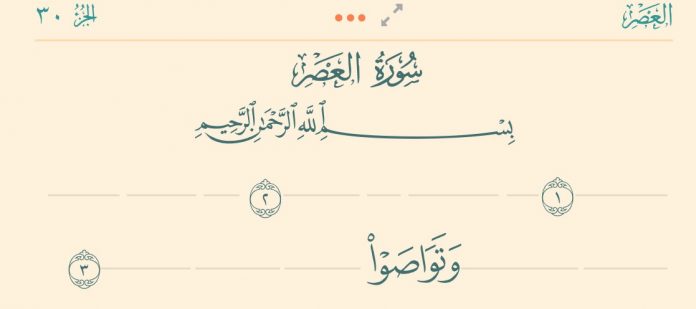 العَصْرِ الجُزْءُ ٣٠
سُورَةُ العَصْرِ
بِسْمِ اللَّهِ الرَّحْمَٰنِ الرَّحِيمِ
١ ٢
وَتَوَاصَوْا۟ ٣